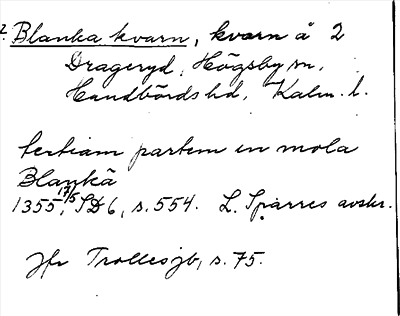 2. Blanka kvarn, kvarn å 2
Drageryd, Högsby sn,
Handbörds hd, Kalm. l.
tertiam partem in mola
Blankä
1355 17/5, SD 6, s. 554. L. Sparres avskr.
Jfr Trollesjb, s. 75.